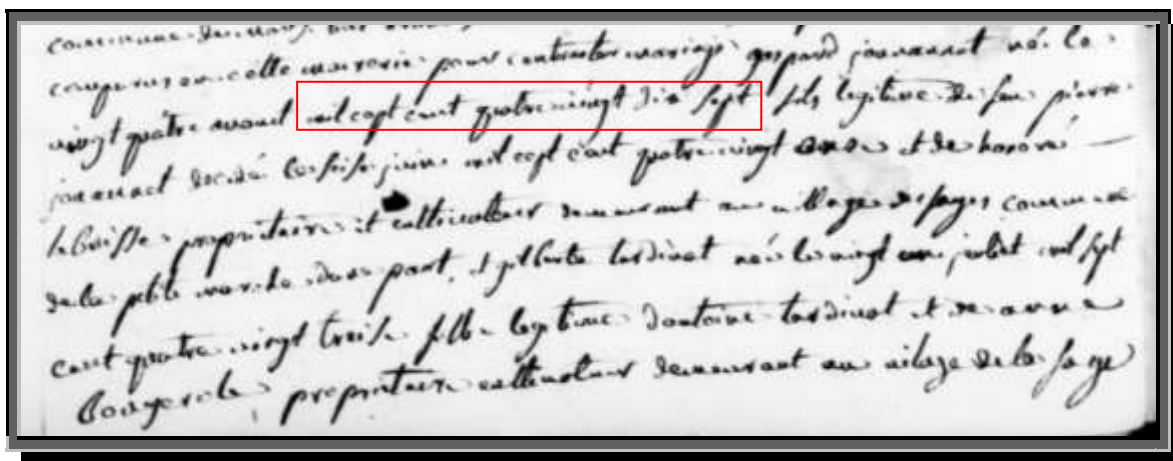 commune de
comparus en cette mairerie pour contracter mariage gaspard jouannet né le
vingt quatre mil cept cent quatre vingt dix sept fils legitime de feu pierre
jouannet décédé le seise juin mil cept cent quatre vingt onse et de honoré
propriétaire et cultivateur demeurant au village des fayes commune
de la petite marche d'une part, et gilberte tardivat née le vingt un juliet mil sept
cent quatre vingt treise fille legitime d'antoine tardivat et de anne
Bougerole propriétaire cultivateur demeurant au vilage de la faye